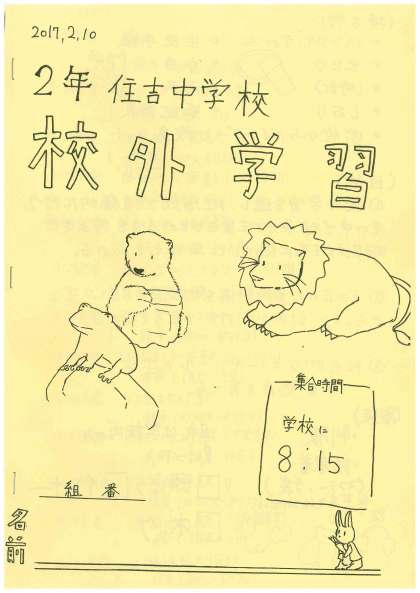 2017,2,10
2年 住吉中学校
校外学習
集合時間
学校に
8:15
組 番
名前